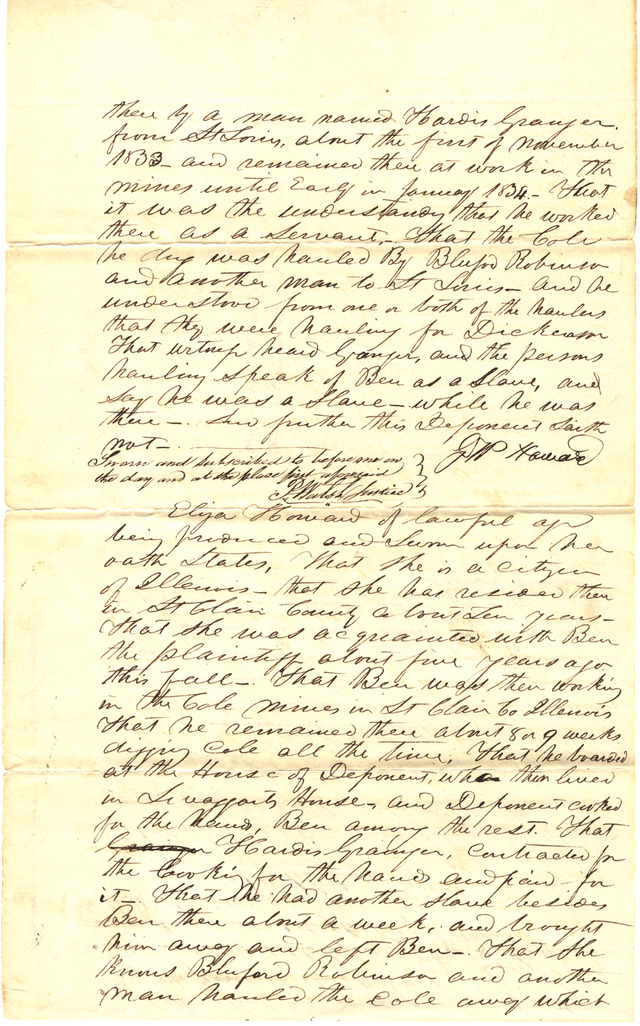 there by a man named Hardis Granger
from St Louis, about the first of November
1833 - and remained there at work in the
mines until Early in January 1834 - That
it was the understanding that he worked
there as a Servant - that the Cole
he dug was hauled By Bluford Robinson
and another man to St Louis - and he
understood from one or both of the haulers
that they were hauling for Dickerson
That witness heard Granger, and the persons
hauling speak of Ben as a Slave, and
say he was a Slave - while he was
there - And further this Deponent Saith
not -
J W Howard
Sworn and subscribed to before me on
the day and at the place first aforesaid
P. Walsh Justice
Eliza Howard of lawful age
being produced and Sworn upon her
oath States, That she is a citizen
of Illinois - that she has resided there
in St Clair County about Ten years -
That she was acquainted with Ben
the plaintiff about five years ago
this fall - That Ben was then working
in the Cole mines in St Clair Co Illinois
That he remained there about 8 or 9 weeks
digging Cole all the time, That he boarded
at the House of Deponent, who then lived
in House - and Deponent cooked
for the hands, Ben among the rest. That
Granger Hardis Granger, contracted for
the Cooking for the hands and paid for
it - That he had another slave besides
Ben there about a week, and brought
him away and left Ben - That she
knows Bluford Robinson and another
man hauled the cole away which